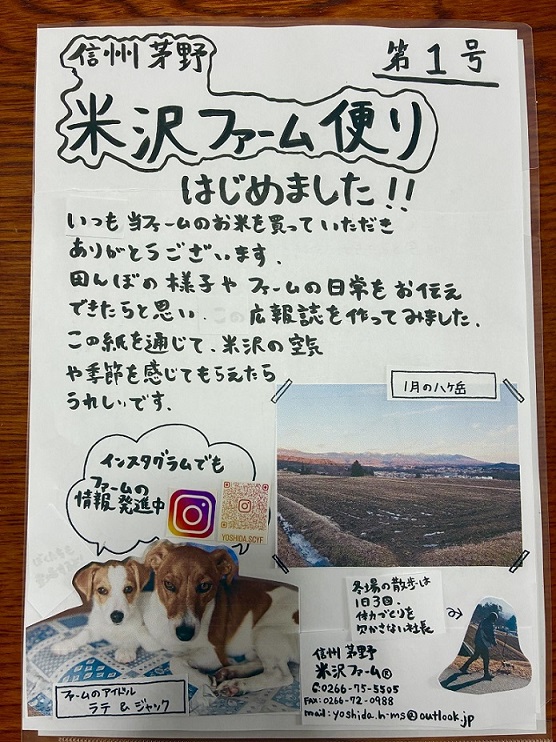 信州 茅野
第1号
米沢ファーム便り
はじめました!!
いつも当ファームのお米を買っていただき
ありがとうございます.
田んぼの様子や ファームの日常をお伝え
できたらと思い. 広報誌を作ってみました.
この紙を通じて、米沢の空気
や季節を感じてもらえたら
うれしいです.
1月の八ヶ岳
インスタグラムでも
ファームの
情報発進中
YOSHIDA.SCYF
冬場の散歩は
1日3回.
体力づくりを
欠かさない社長
信州 茅野
米沢ファーム®
0266-75-5505
FAX:0266-72-0988
mail:yoshida.h-ms@outlook.jp
ファームのアイドル
ラテ & ジャック